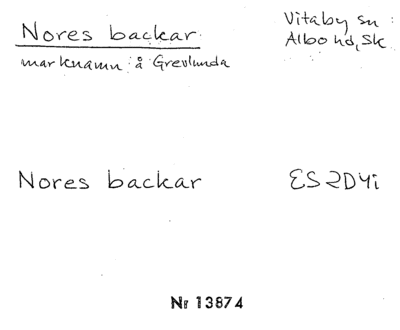 Nores backar
Vitaby sn
Albo hd, Sk.
marknamn å Grevlunda
Nores backar
ES 2D4i
Nr 13874